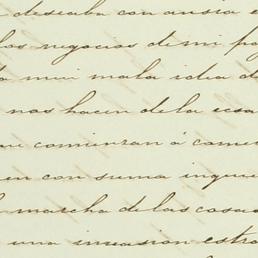 deseaba con ansia e
los negocios de mi pa
muy mala idea d
nos hacen de la cosa
que comienzan á come
en con suma inquie
marcha de las cosas
una invasion estra